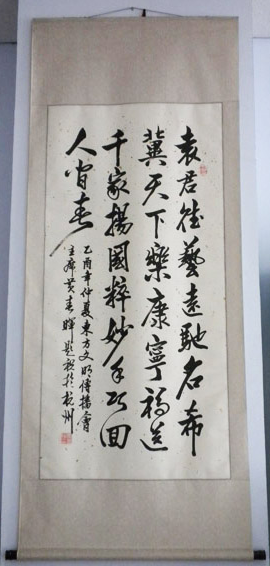 袁君德藝遠馳名希
冀天下樂康寧福送
千家揚國粹妙手巧回
人間春
乙酉年仲夏東方文明傳播會
主席黃春輝題祝於杭州